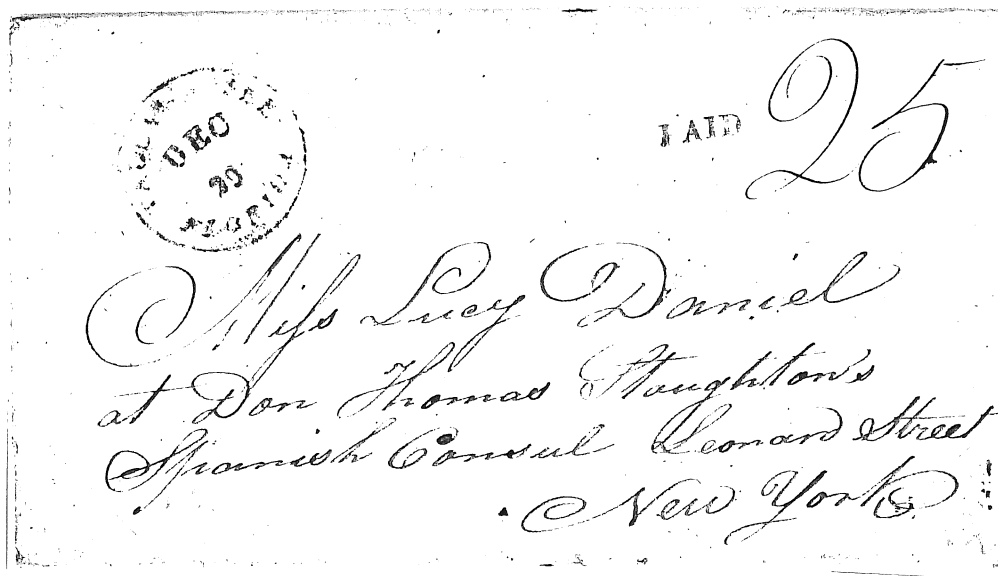 DEC
29
FLORIDA
PAID 25
Miss Lucy Daniel
at Don Thomas Stoughton's
Spanish Consul Leonard Street
New York